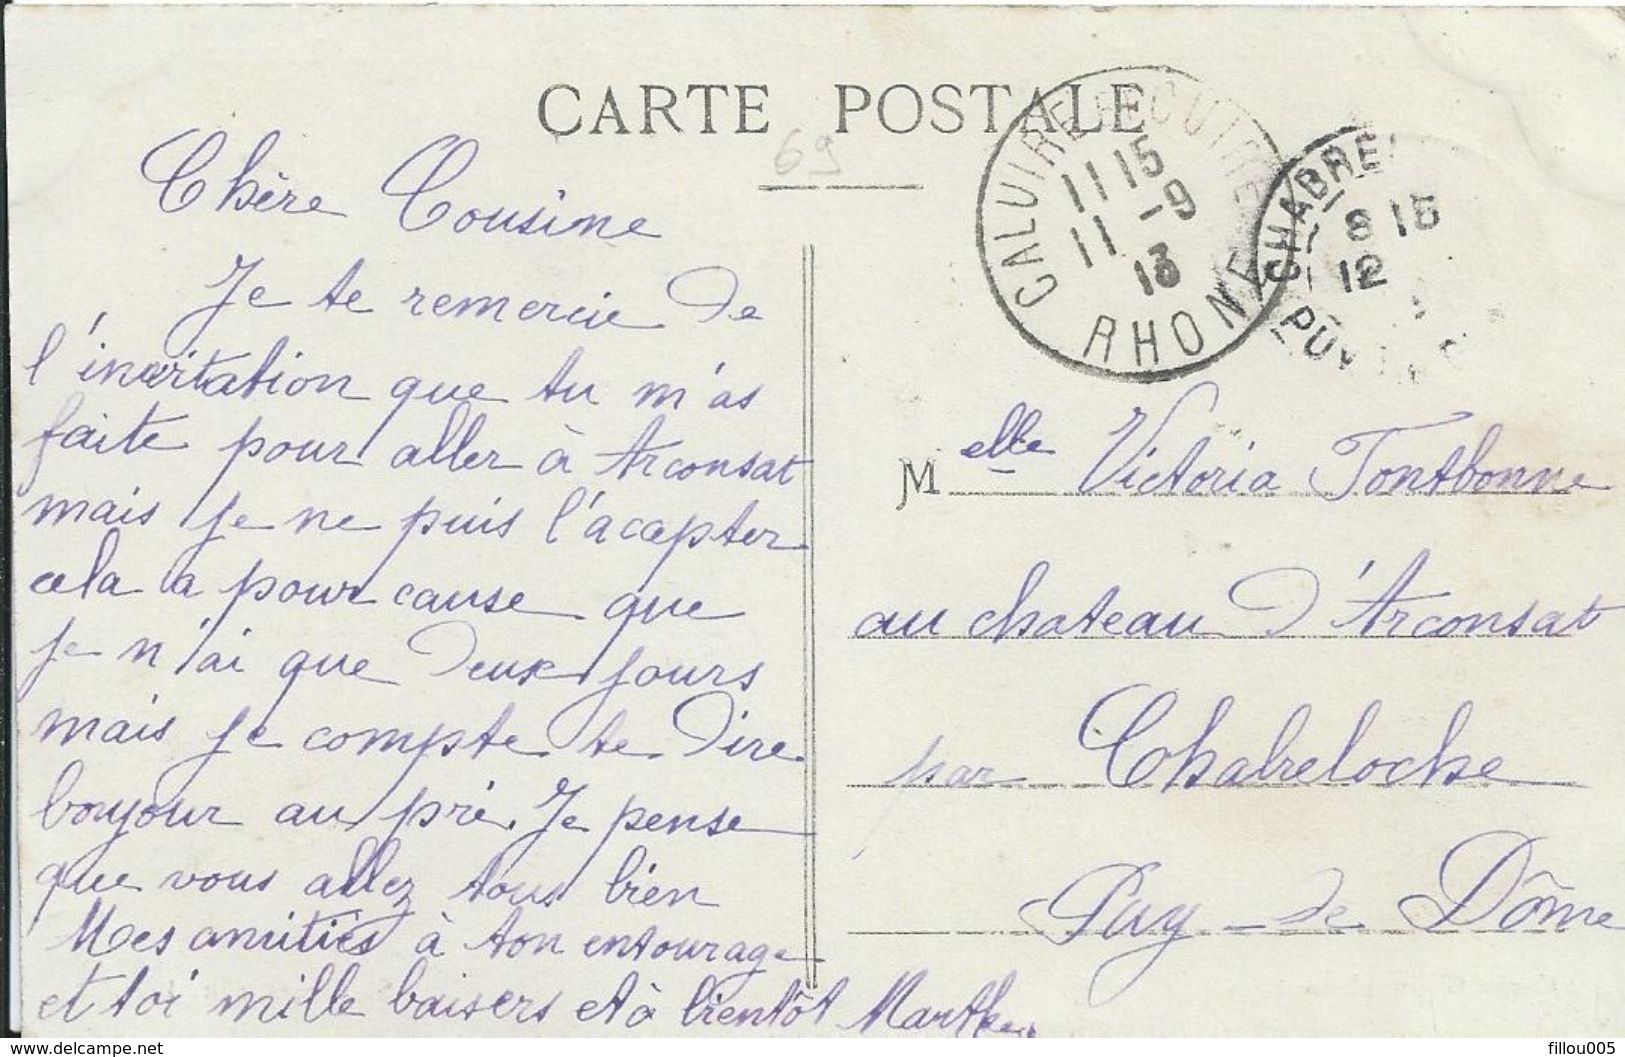 CARTE POSTALE
69
CALUIRE ET CUIRE
11 15
11 -9
13
RHONE
CHABRE
8 15
12
PUY
Chère Cousine
Je te remercie de
l'invitation que tu m'as
faite pour aller à Arconsat
mais je ne puis l'acepter
cela a pour cause que
je n'ai que deux jours
mais je compte te dire
bonjour au pré. Je pense
que vous allez tous bien
Mes amitiés à ton entourage
et toi mille baisers et à bientôt Marthe.
Melle Victoria Fontbonne
au chateau d'Arconsat
par Chabreloche
Puy-de Dôme
www.delcampe.net
fillou005